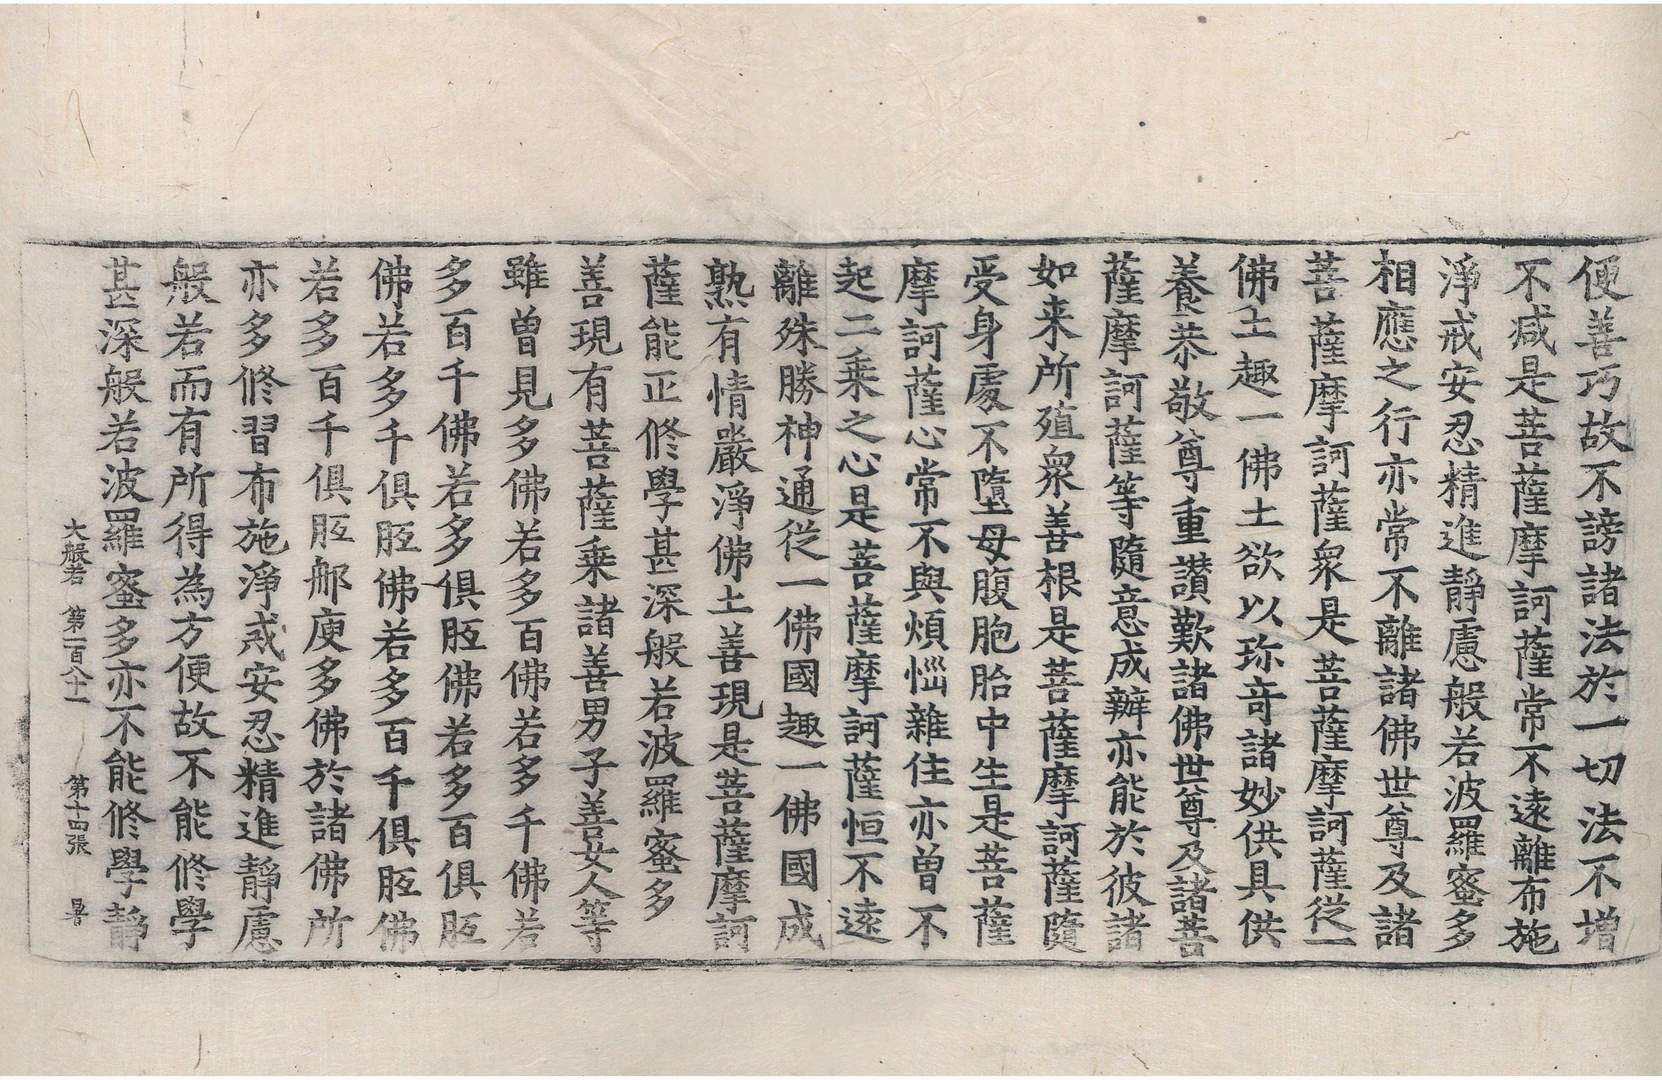 便善巧故不謗諸法於一切法不增
不減是菩薩摩訶薩常不遠離布施
淨戒安忍精進靜慮般若波羅蜜多
相應之行亦常不離諸佛世尊及諸
菩薩摩訶薩衆是菩薩摩訶薩從一
佛土趣一佛土欲以珎奇諸妙供具供
養恭敬尊重讃歎諸佛世尊及諸菩
薩摩訶薩等隨意成辦亦能於彼諸
如来所殖衆善根是菩薩摩訶薩隨
受身處不墮母腹胞胎中生是菩薩
摩訶薩心常不與煩惱雜住亦曽不
起二乗之心是菩薩摩訶薩恒不遠
離殊勝神通從一佛國趣一佛國成
熟有情嚴淨佛土善現是菩薩摩訶
薩能正修學甚深般若波羅蜜多
善現有菩薩乗諸善男子善女人等
雖曽見多佛若多百佛若多千佛若
多百千佛若多俱胝佛若多百俱胝
佛若多千俱胝佛若多百千俱胝佛
若多百千俱胝那庾多佛於諸佛所
亦多修習布施淨戒安忍精進靜慮
般若而有所得為方便故不能修學
甚深般若波羅蜜多亦不能修學靜
大般若 第一百八十一 第十四張 暑